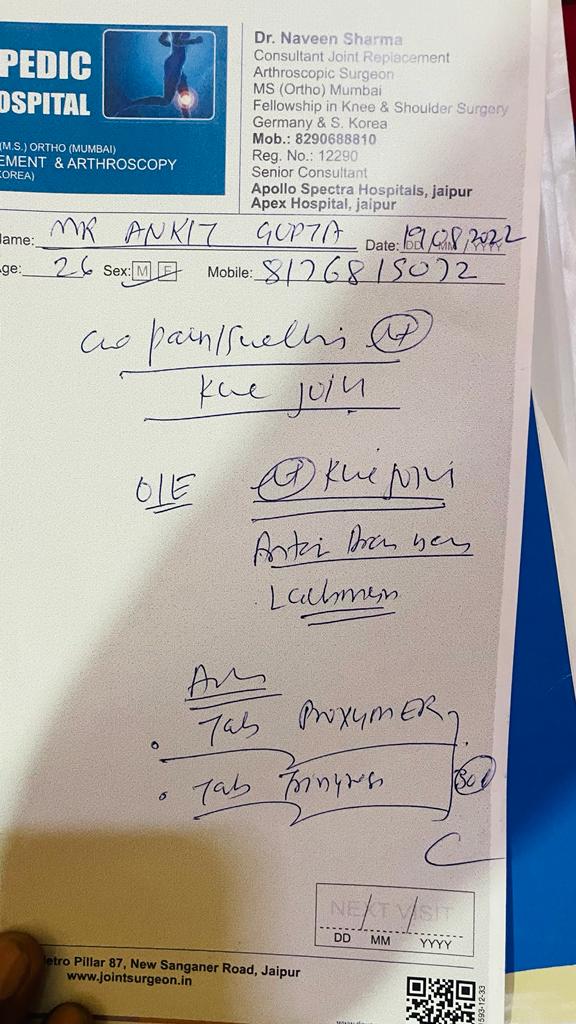 PEDIC
OSPITAL
(M.S.) ORTHO (MUMBAI)
EMENT & ARTHROSCOPY
KOREA)
Dr. Naveen Sharma
Consultant Joint Replacement
Arthroscopic Surgeon
MS (Ortho) Mumbai
Fellowship in Knee & Shoulder Surgery
Germany & S. Korea
Mob.: 8290688810
Reg. No.: 12290
Senior Consultant
Apollo Spectra Hospitals, jaipur
Apex Hospital, jaipur
ame: MR ANKIT GUPTA Date: 19/08/2022
ge: 26 Sex: M F Mobile: 8176815072
c/o pain/swelling
Knee joint
O/E Knee joint
Lachman
Adv
Tab
Tab
NEXT VISIT
DD MM YYYY
etro Pillar 87, New Sanganer Road, Jaipur
www.jointsurgeon.in
593-12-33